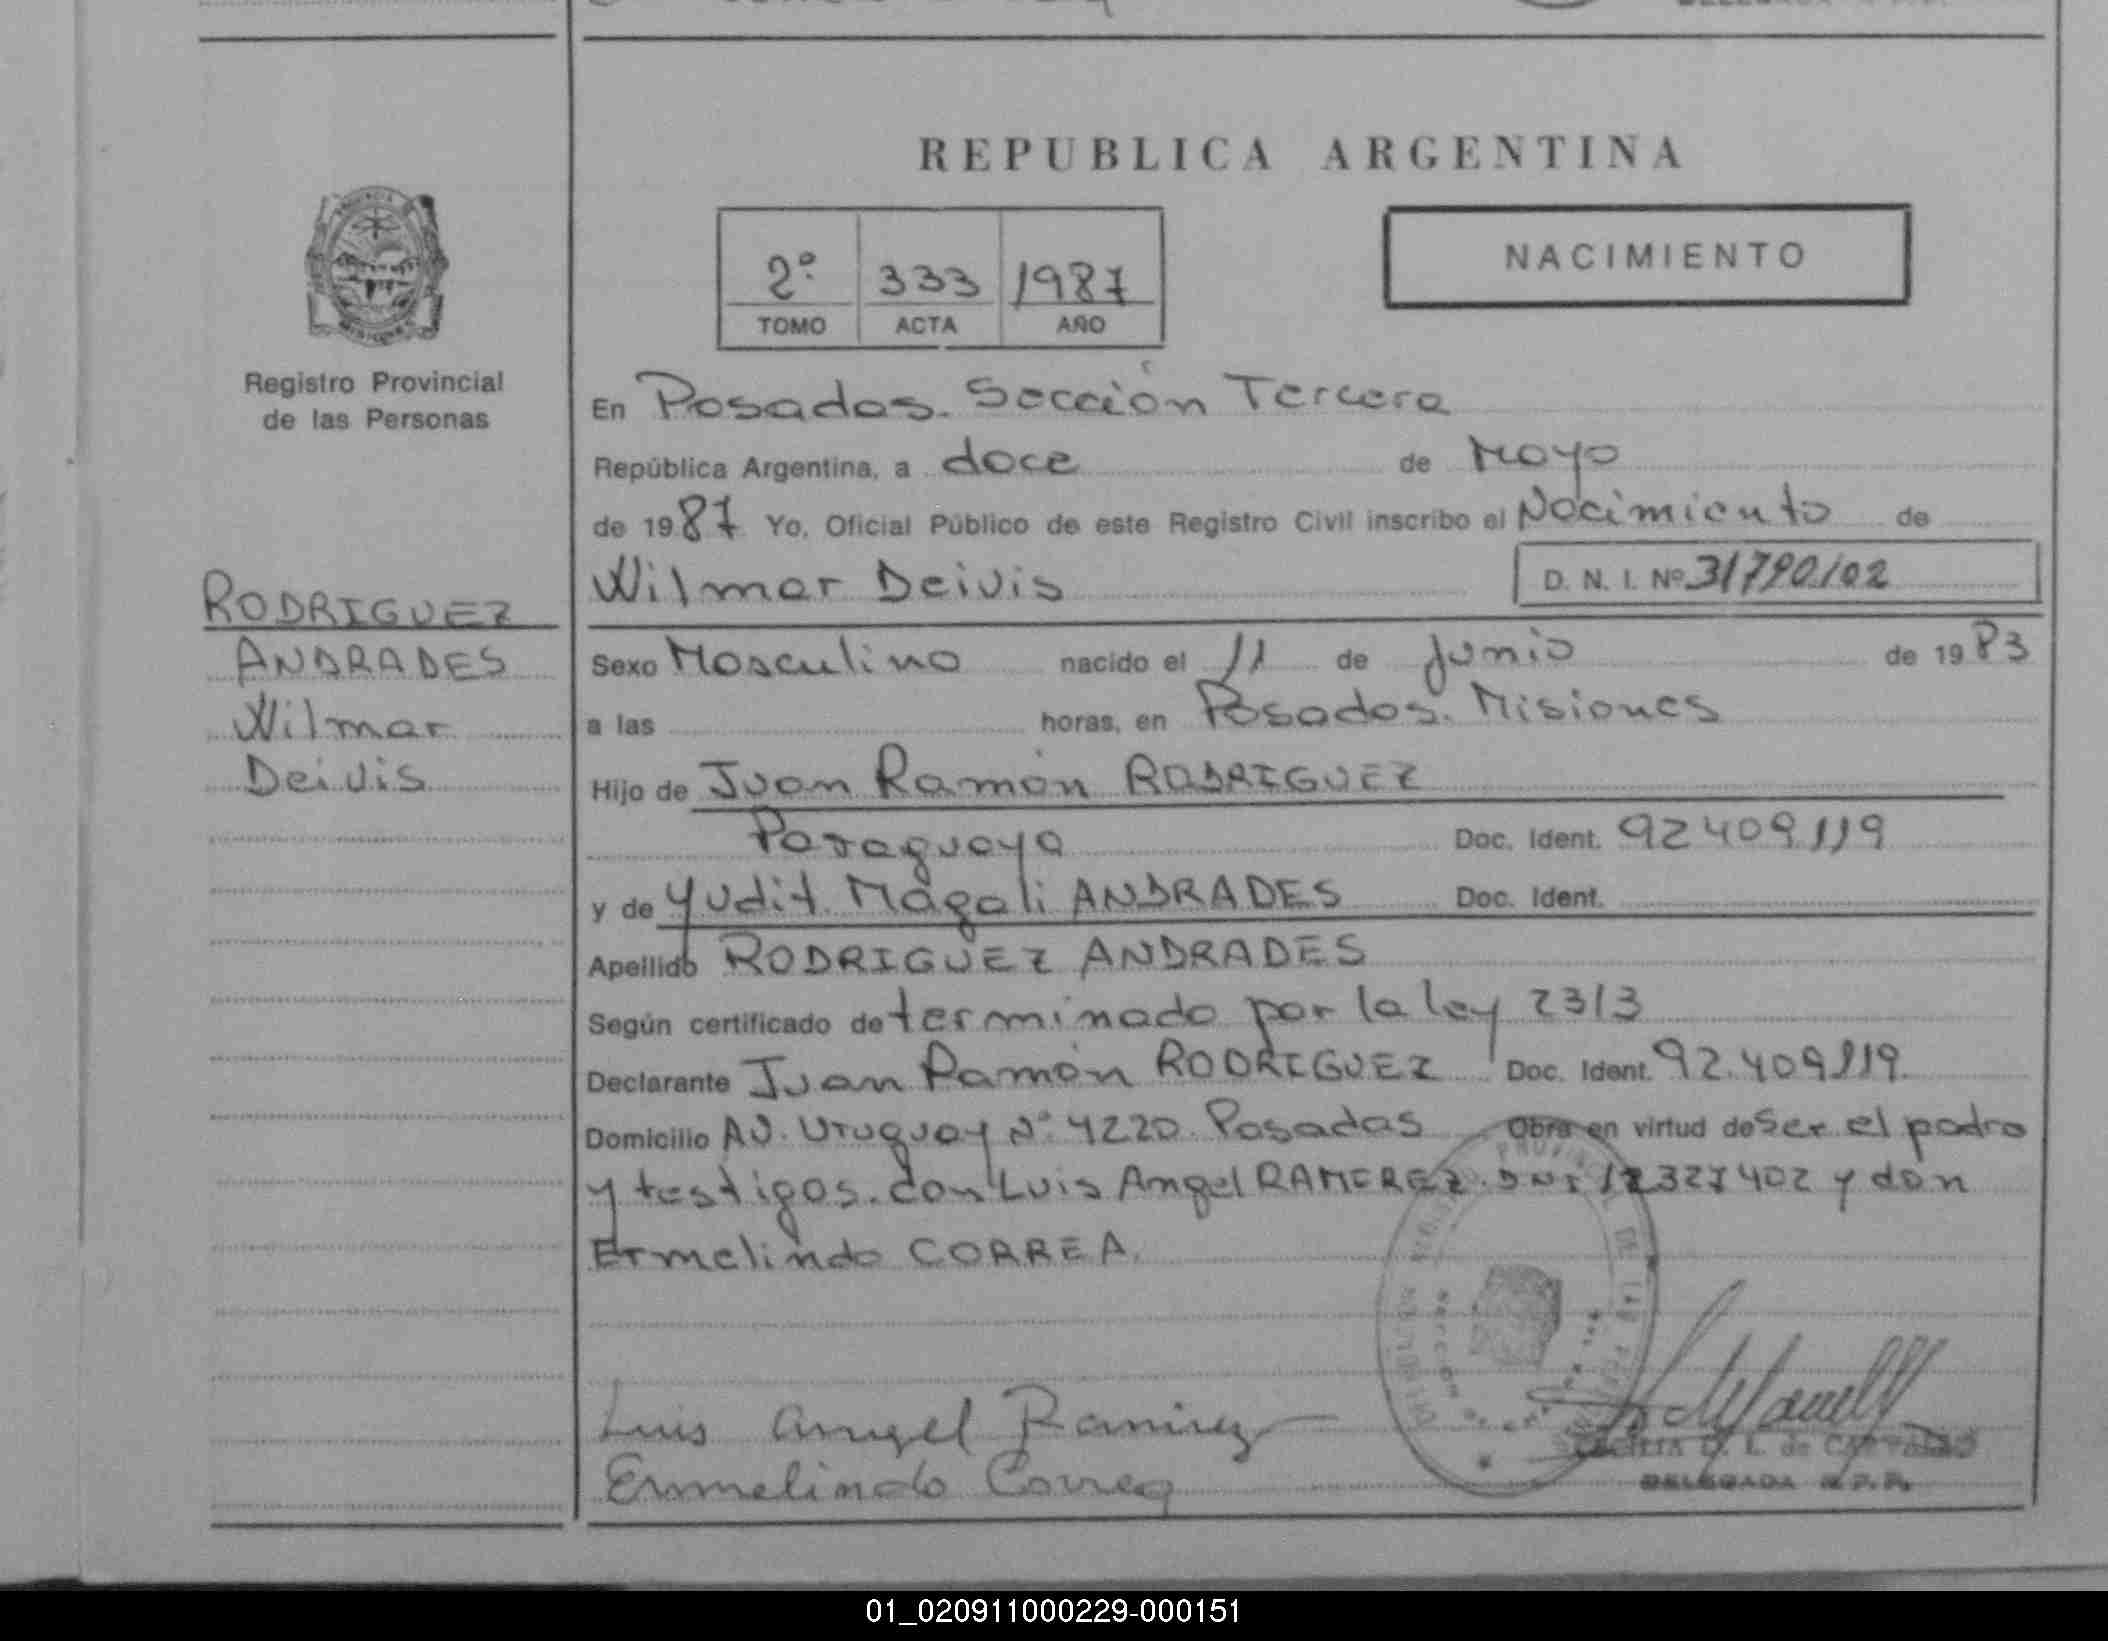 REPUBLICA ARGENTINA
NACIMIENTO
2º 333 1987
TOMO ACTA AÑO
Registro Provincial
de las Personas
En Posadas. Sección Tercera
República Argentina, a doce de Mayo
de 1987 Yo, Oficial Público de este Registro Civil inscribo el Nacimiento de
Wilmar Deivis D. N. I. Nº 31790102
RODRIGUEZ
ANDRADES
Wilmar
Deivis
Sexo Masculino nacido el 11 de Junio de 1983
a las horas, en Posadas. Misiones
Hijo de Juan Ramón RODRIGUEZ
Paraguaya Doc. Ident. 92409119
y de Yudit Magali ANDRADES Doc. Ident.
Apellido RODRIGUEZ ANDRADES
Según certificado determinado por la ley 2313
Declarante Juan Ramón RODRIGUEZ Doc. Ident. 92.409119
Domicilio AV. Uruguay Nº 4220. Posadas Obra en virtud de Ser el padre
y testigos. don Luis Angel RAMIREZ. DNI 12327402 y don
Ermelindo CORREA.
Luis Angel Ramirez
Ermelindo Correa
DELEGADA R.P.P.
01_020911000229-000151